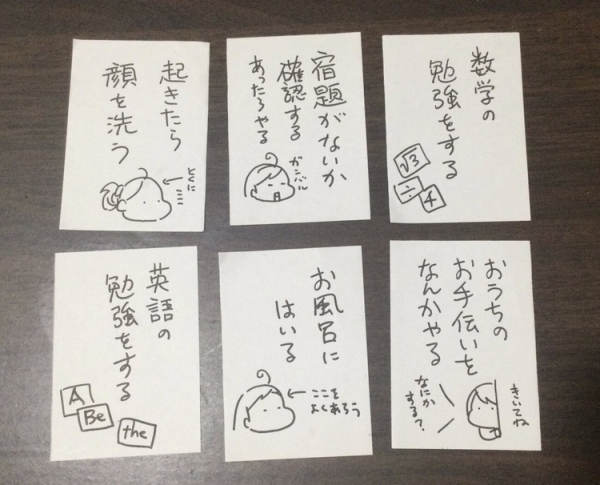 起きたら
顔を洗う
とくに
ここ
宿題がないか
確認する
あったらやる
ガンバル
数学の
勉強をする
√3
÷
4
英語の
勉強をする
A
Be
the
お風呂に
はいる
ここを
よくあらう
おうちの
お手伝いを
なんかやる
きいてね
なにか
する?